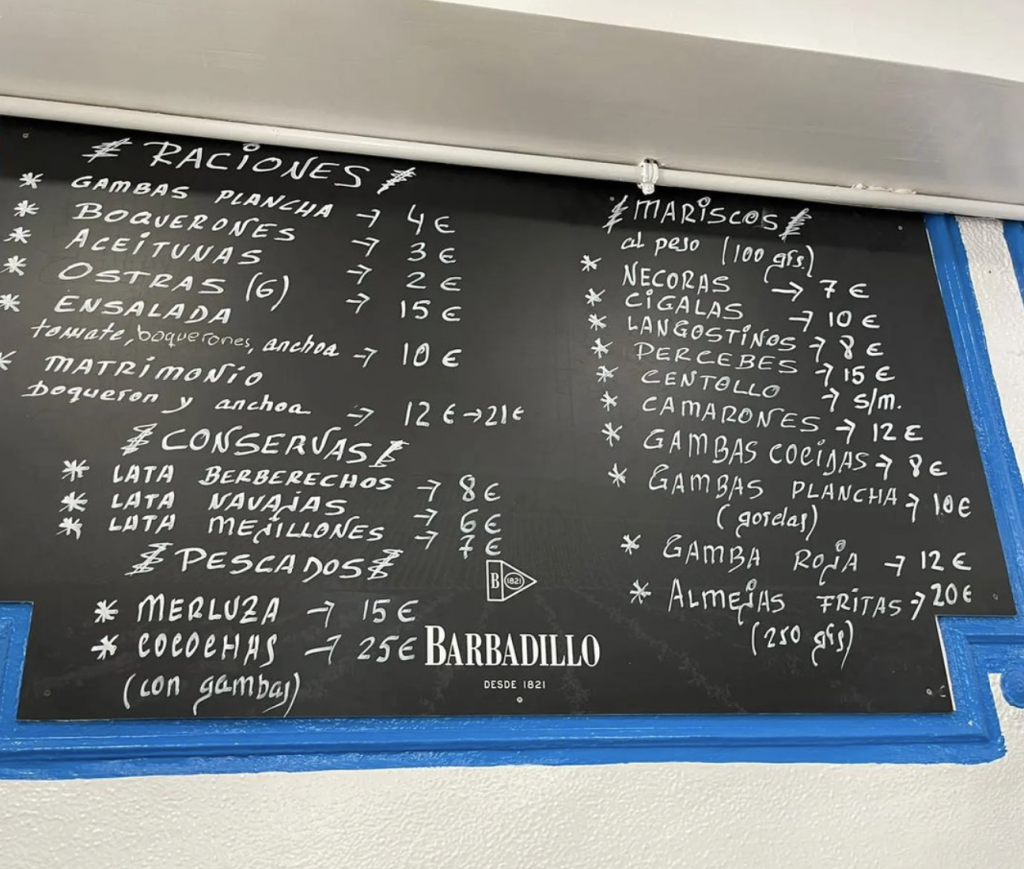 RACIONES
* GAMBAS PLANCHA → 4€
* BOQUERONES → 3€
* ACEITUNAS → 2€
* OSTRAS (6) → 15€
* ENSALADA
tomate, boquerones, anchoa → 10€
* MATRIMONIO
boqueron y anchoa → 12€→21€
CONSERVAS
* LATA BERBERECHOS → 8€
* LATA NAVAJAS → 6€
* LATA MEJILLONES → 7€
PESCADOS
* MERLUZA → 15€
* COCOCHAS → 25€
(con gambas)
MARISCOS
al peso (100 grs.)
* NECORAS → 7€
* CIGALAS → 10€
* LANGOSTINOS → 8€
* PERCEBES → 15€
* CENTOLLO → s/m.
* CAMARONES → 12€
* GAMBAS COCIDAS → 8€
* GAMBAS PLANCHA → 10€
(gordas)
* GAMBA ROJA → 12€
* ALMEJAS FRITAS → 20€
(250 grs)
B 1821
BARBADILLO
DESDE 1821